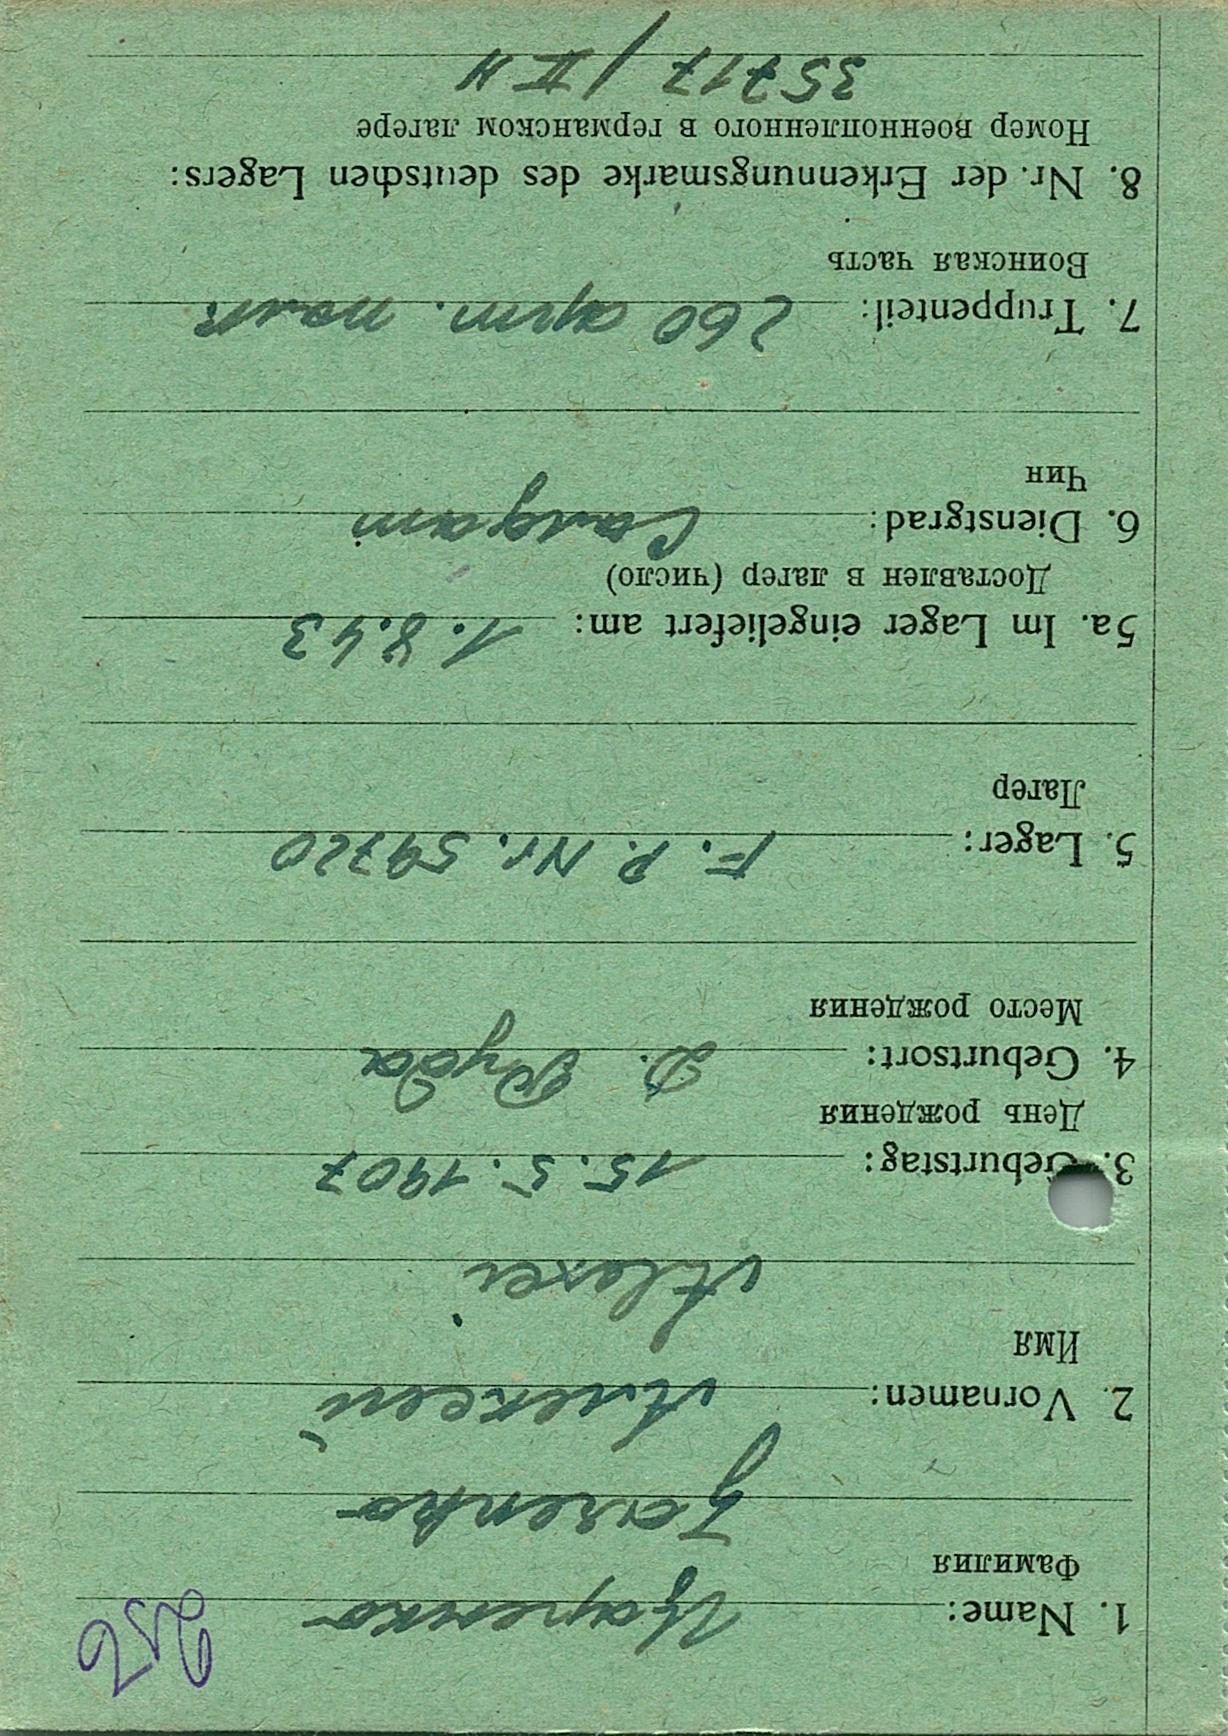 256
1. Name: Царенко
Фамилия
Zarenko
2. Vornamen: Алексей
Имя
Alexei
3. Geburtstag: 15. 5. 1907
День рождения
4. Geburtsort: D. Руда
Место рождения
5. Lager: F. P. Nr. 59720
Лагер
5a. Im Lager eingeliefert am: 1. 8. 43
Доставлен в лагер (число)
6. Dienstgrad: Солдат
Чин
7. Truppenteil: 260 арт. полк
Воинская часть
8. Nr. der Erkennungsmarke des deutschen Lagers:
Номер военнопленного в германском лагере
35717 / II H